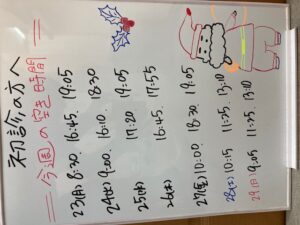 初診の方へ
＝今週の空き時間＝
23(月) 8:30 16:45. 19:05
24(火) 9:00. 16:10. 18:30
25(水) 17:20 19:05
26(木) 16:45. 17:55
27(金) 10:00 18:30 19:05
28(土) 10:15 11:25. 13:10
29(日) 9:05 11:25. 13:10